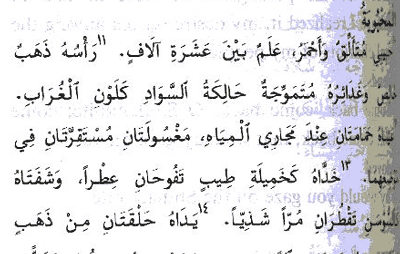 الْمَحْبُوبَةُ
حَبِيبِي مُتَأَلِّقٌ وَأَحْمَرُ، عَلَمٌ بَيْنَ عَشَرَةِ آلَافٍ. ١١رَأْسُهُ ذَهَبٌ
خَالِصٌ وَغَدَائِرُهُ مُتَمَوِّجَةٌ حَالِكَةُ السَّوَادِ كَلَوْنِ الْغُرَابِ.
حَمَامَتَانِ عِنْدَ مَجَارِي الْمِيَاهِ، مَغْسُولَتَانِ مُسْتَقِرَّتَانِ فِي
١٣خَدَّاهُ كَخَمِيلَةِ طِيبٍ تَفُوحَانِ عِطْراً، وَشَفَتَاهُ
كَالسُّوْسَنِ تَقْطُرَانِ مُرّاً شَذِيّاً. ١٤يَدَاهُ حَلْقَتَانِ مِنْ ذَهَبٍ